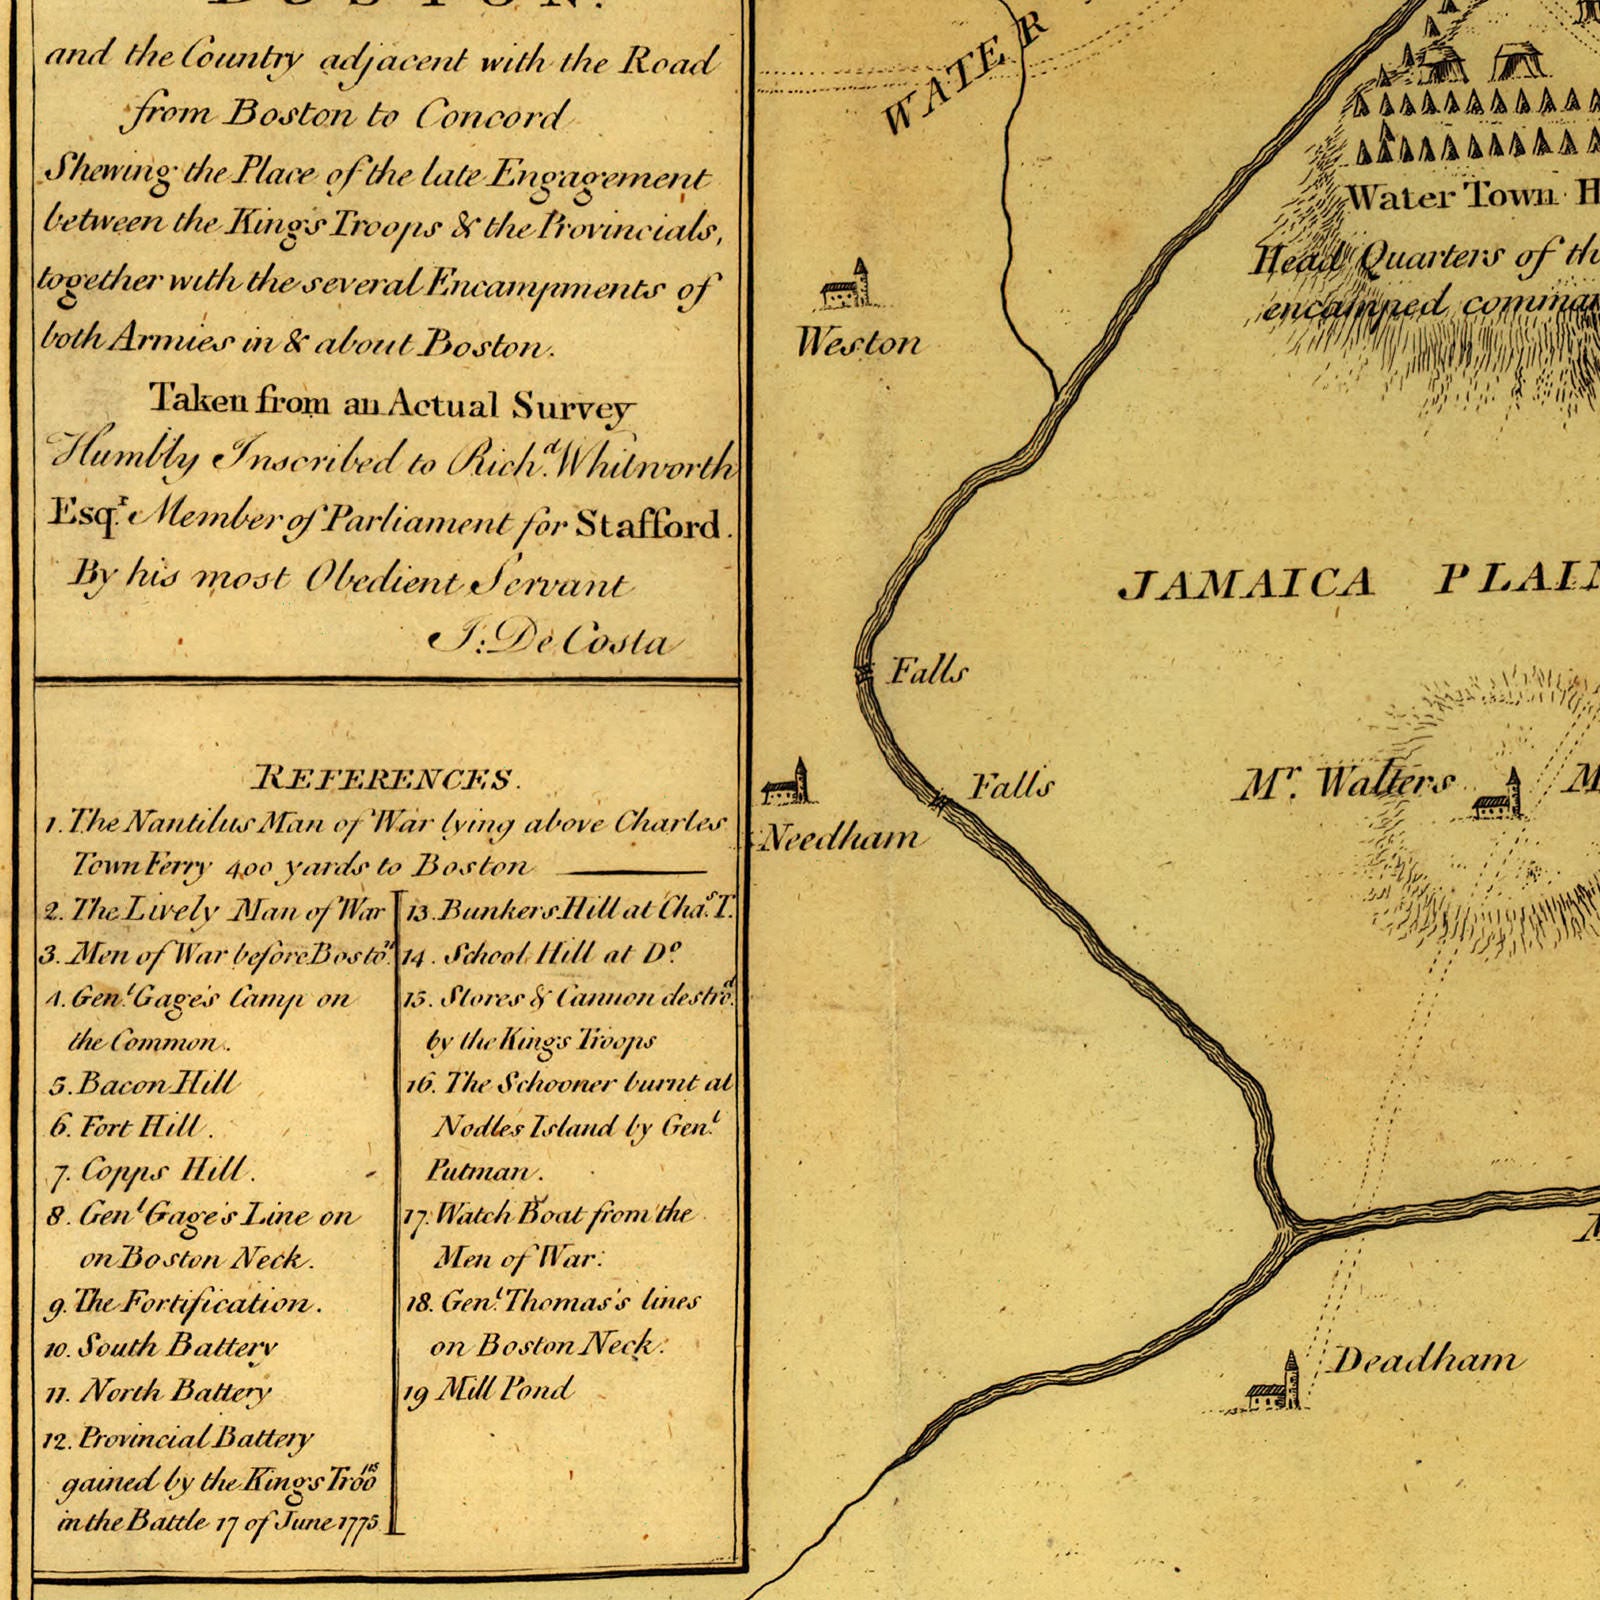 BOSTON.
and the Country adjacent with the Road
from Boston to Concord
Shewing the Place of the late Engagement
between the King's Troops & the Provincials,
together with the several Encampments of
both Armies in & about Boston.
Taken from an Actual Survey
Humbly Inscribed to Richd. Whitworth
Esqr. Member of Parliament for Stafford.
By his most Obedient Servant
J: De Costa
REFERENCES.
1. The Nantilus Man of War lying above Charles
Town Ferry 400 yards to Boston
2. The Lively Man of War
3. Men of War before Boston
4. Genl. Gage's Camp on
the Common.
5. Bacon Hill
6. Fort Hill.
7. Copps Hill.
8. Genl Gage's Line on
on Boston Neck.
9. The Fortification.
10. South Battery
11. North Battery
12. Provincial Battery
gained by the Kings Troops
in the Battle 17 of June 1775
13. Bunkers Hill at Chas. T.
14. School Hill at Do.
15. Stores & Cannon destrod.
by the Kings Troops
16. The Schooner burnt at
Nodles Island by Genl.
Putman.
17. Watch Boat from the
Men of War:
18. Genl. Thomas's lines
on Boston Neck:
19 Mill Pond
WATER
Water Town H
Head Quarters of th
encamped comman
Weston
JAMAICA PLAIN
Falls
Mr. Walters
M
Falls
Needham
M
Deadham